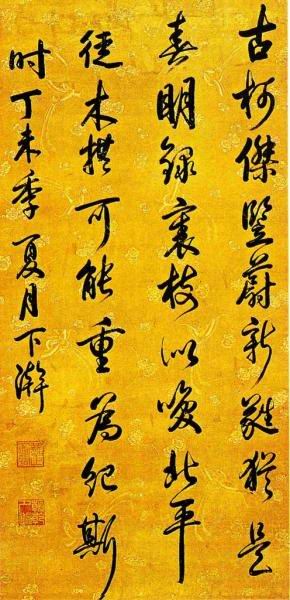 古柯傑竪蔚新蕤猶是
春明録裏枝似喚北平
徒木撰可能重為紀斯
时丁未季夏月下澣